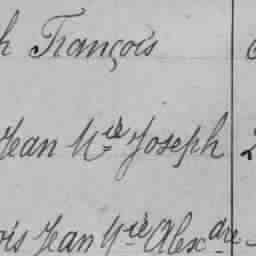 h François
Jean Mie Joseph 2
ois Jean Mie Alexdre